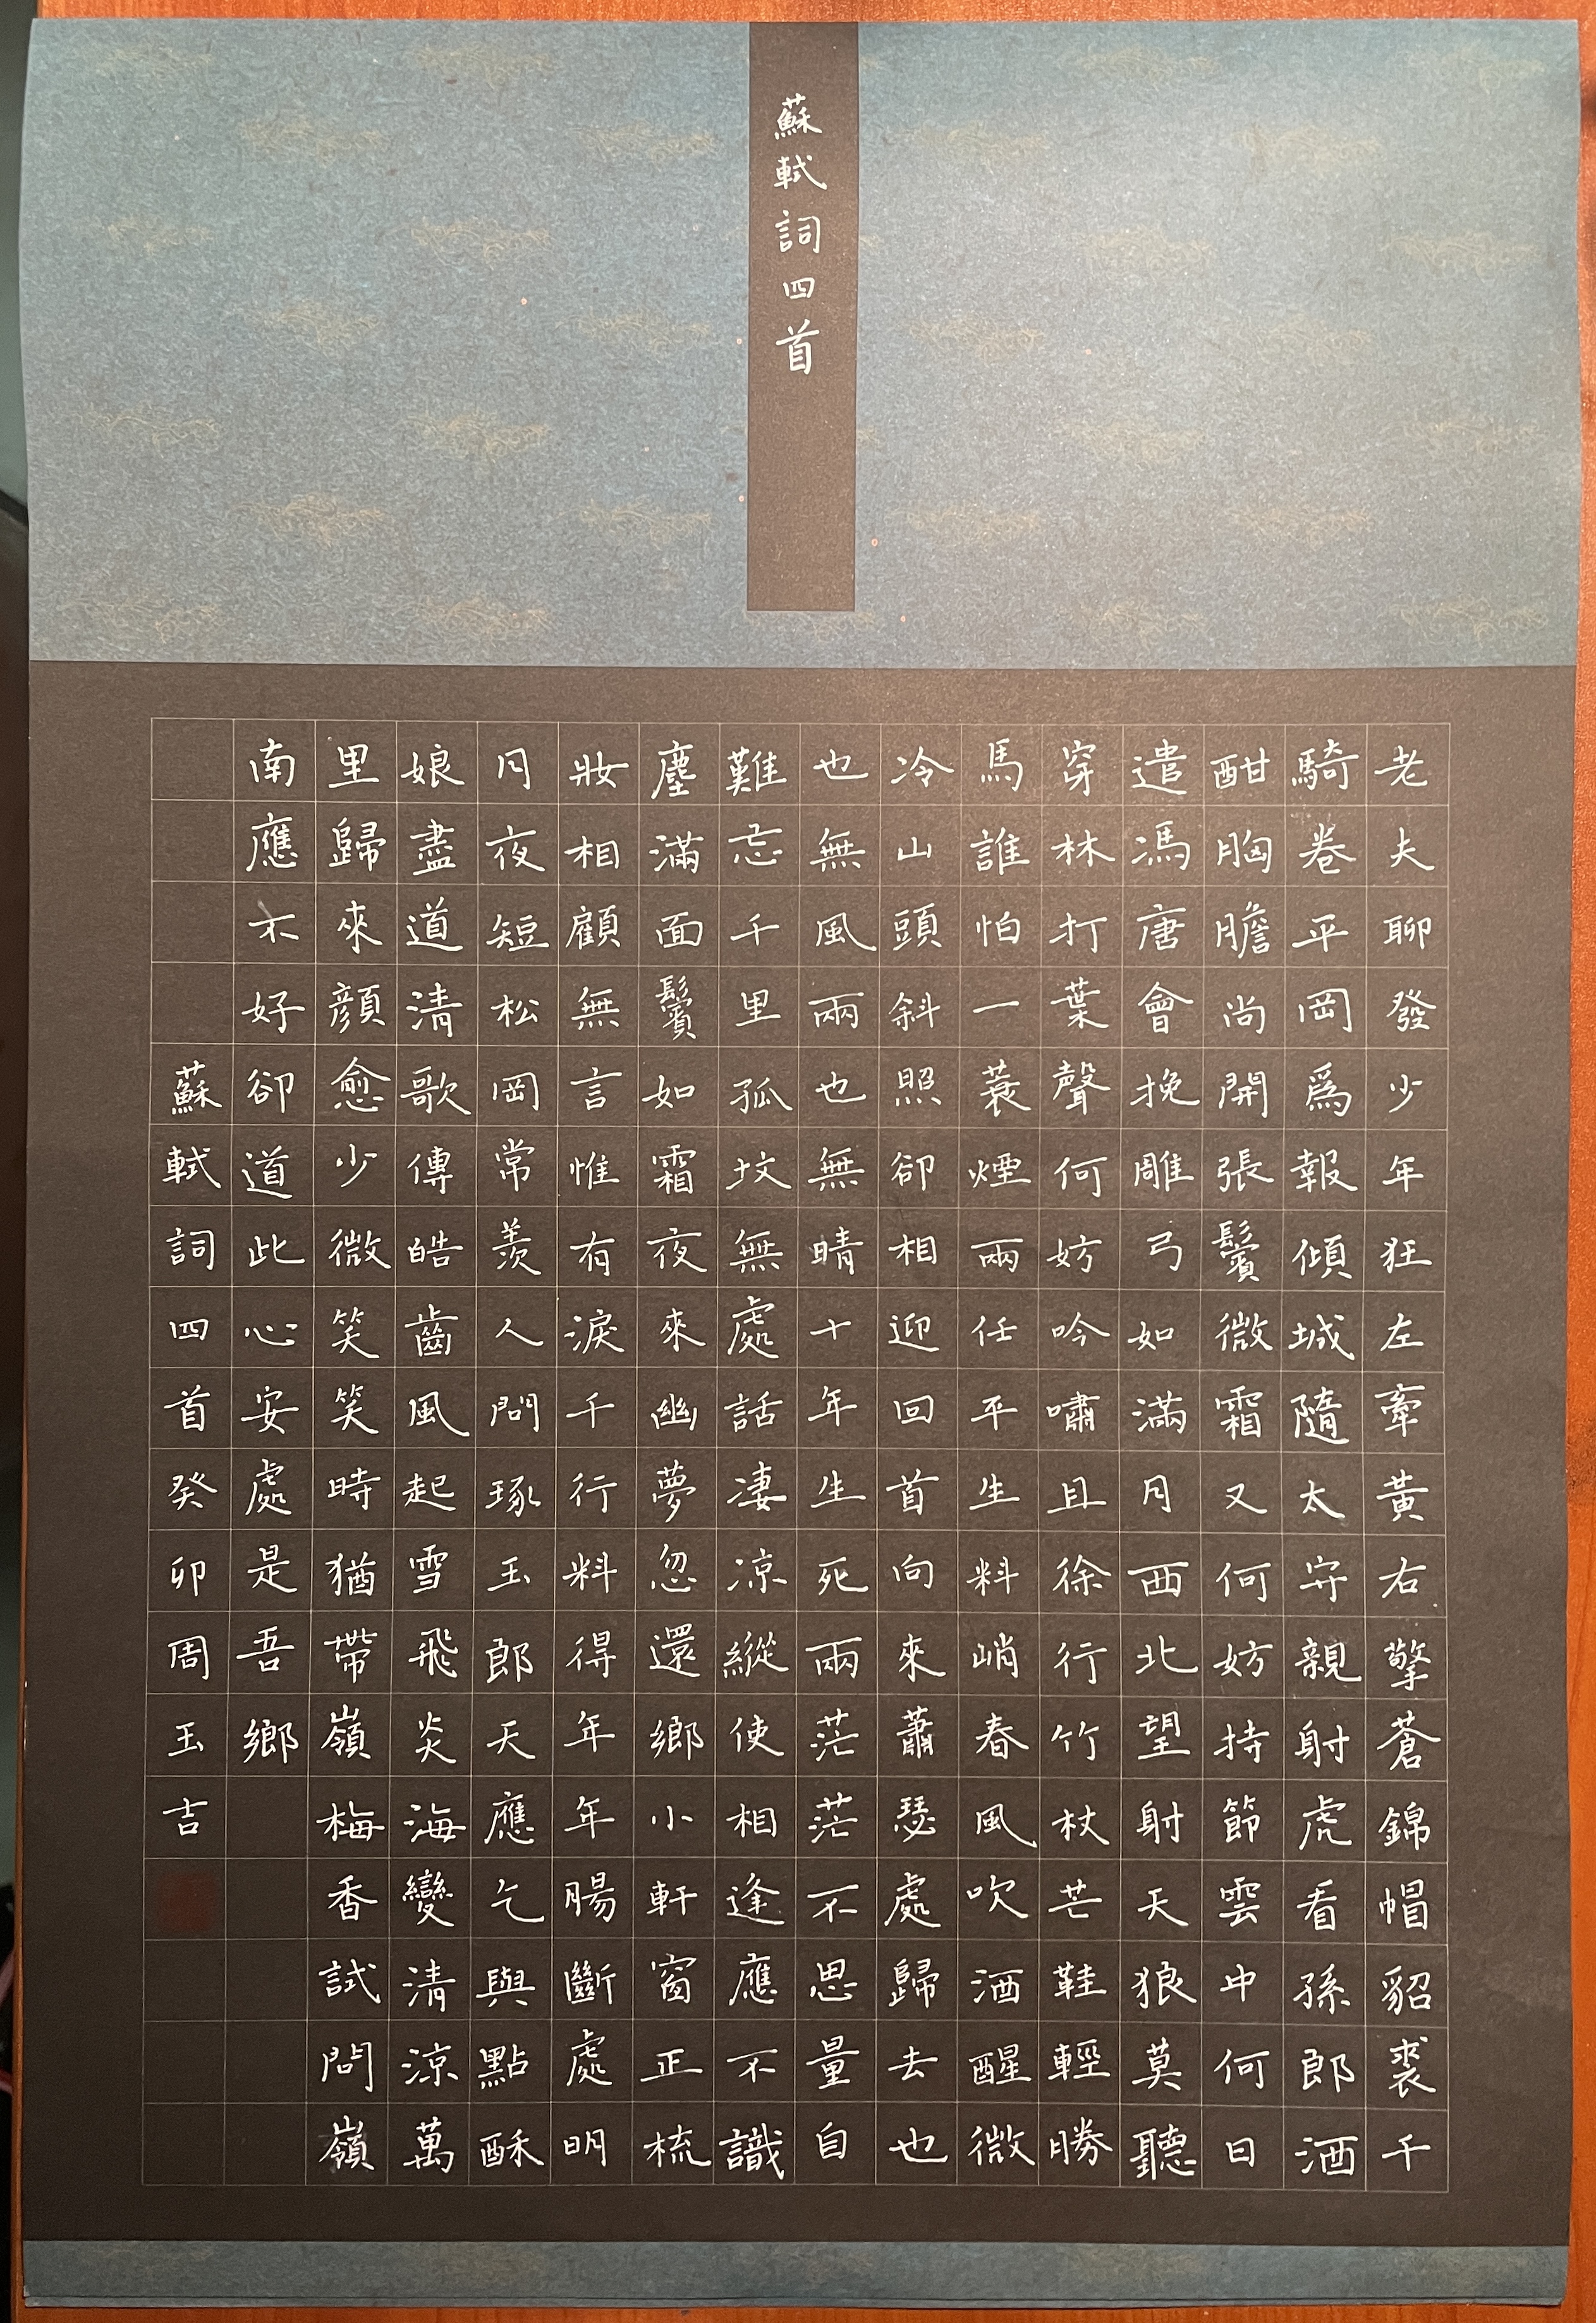 蘇軾詞四首
老夫聊發少年狂左牽黃右擎蒼錦帽貂裘千
騎卷平岡爲報傾城隨太守親射虎看孫郎酒
酣胸膽尚開張鬢微霜又何妨持節雲中何日
遣馮唐會挽雕弓如滿月西北望射天狼莫聽
穿林打葉聲何妨吟嘯且徐行竹杖芒鞋輕勝
馬誰怕一蓑煙雨任平生料峭春風吹酒醒微
冷山頭斜照卻相迎回首向來蕭瑟處歸去也
也無風雨也無晴十年生死兩茫茫不思量自
難忘千里孤坟無處話凄凉縱使相逢應不識
塵滿面鬢如霜夜來幽夢忽還鄉小軒窗正梳
妝相顧無言惟有淚千行料得年年腸斷處明
月夜短松岡常羨人問琢玉郎天應乞與點酥
娘盡道清歌傳皓齒風起雪飛炎海變清涼萬
里歸來顏愈少微笑笑時猶帶嶺梅香試問嶺
南應不好卻道此心安處是吾鄉
蘇軾詞四首癸卯周玉吉